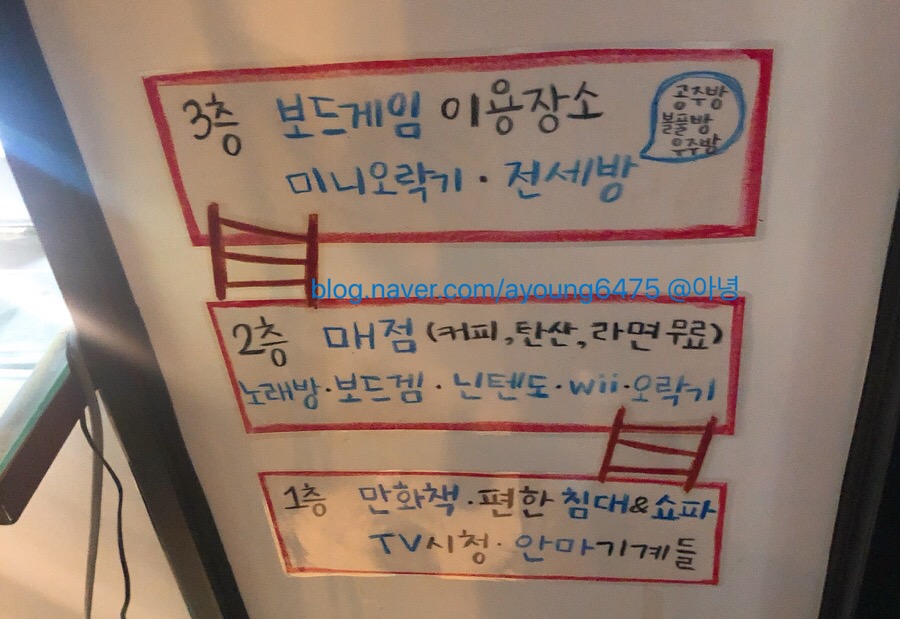 3층 보드게임 이용장소
공주방
볼풀방
우주방
미니오락기·전세방
blog.naver.com/ayoung6475 @아녕
2층 매점 (커피,탄산,라면무료)
노래방·보드겜·닌텐도·wii·오락기
1층 만화책·편한 침대&쇼파
TV시청·안마기계들